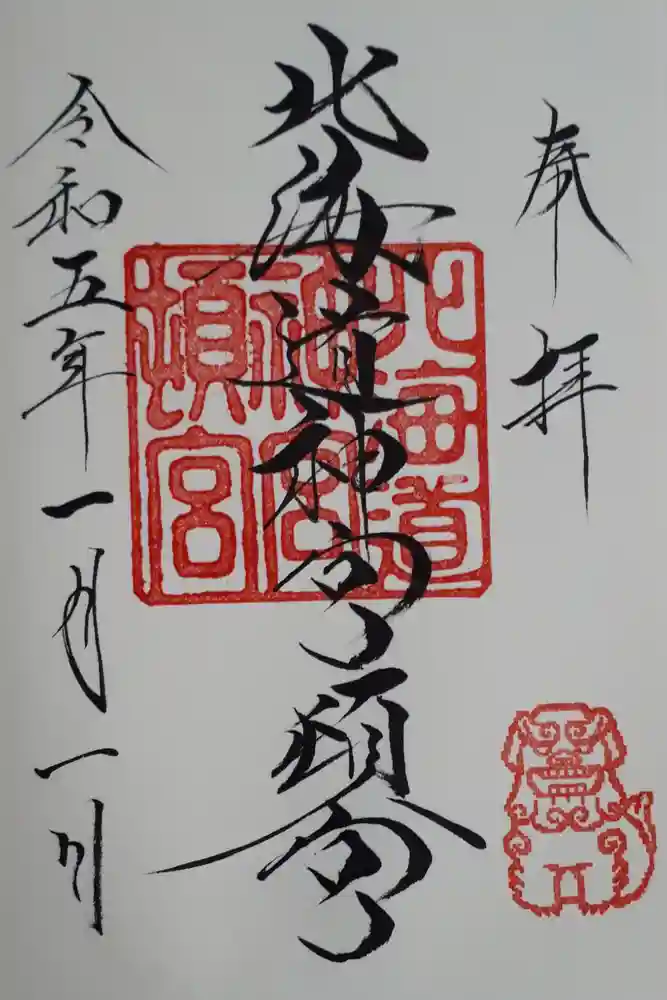 奉拝
北海道神宮頓宮
北海道神宮頓宮
令和五年一月一日